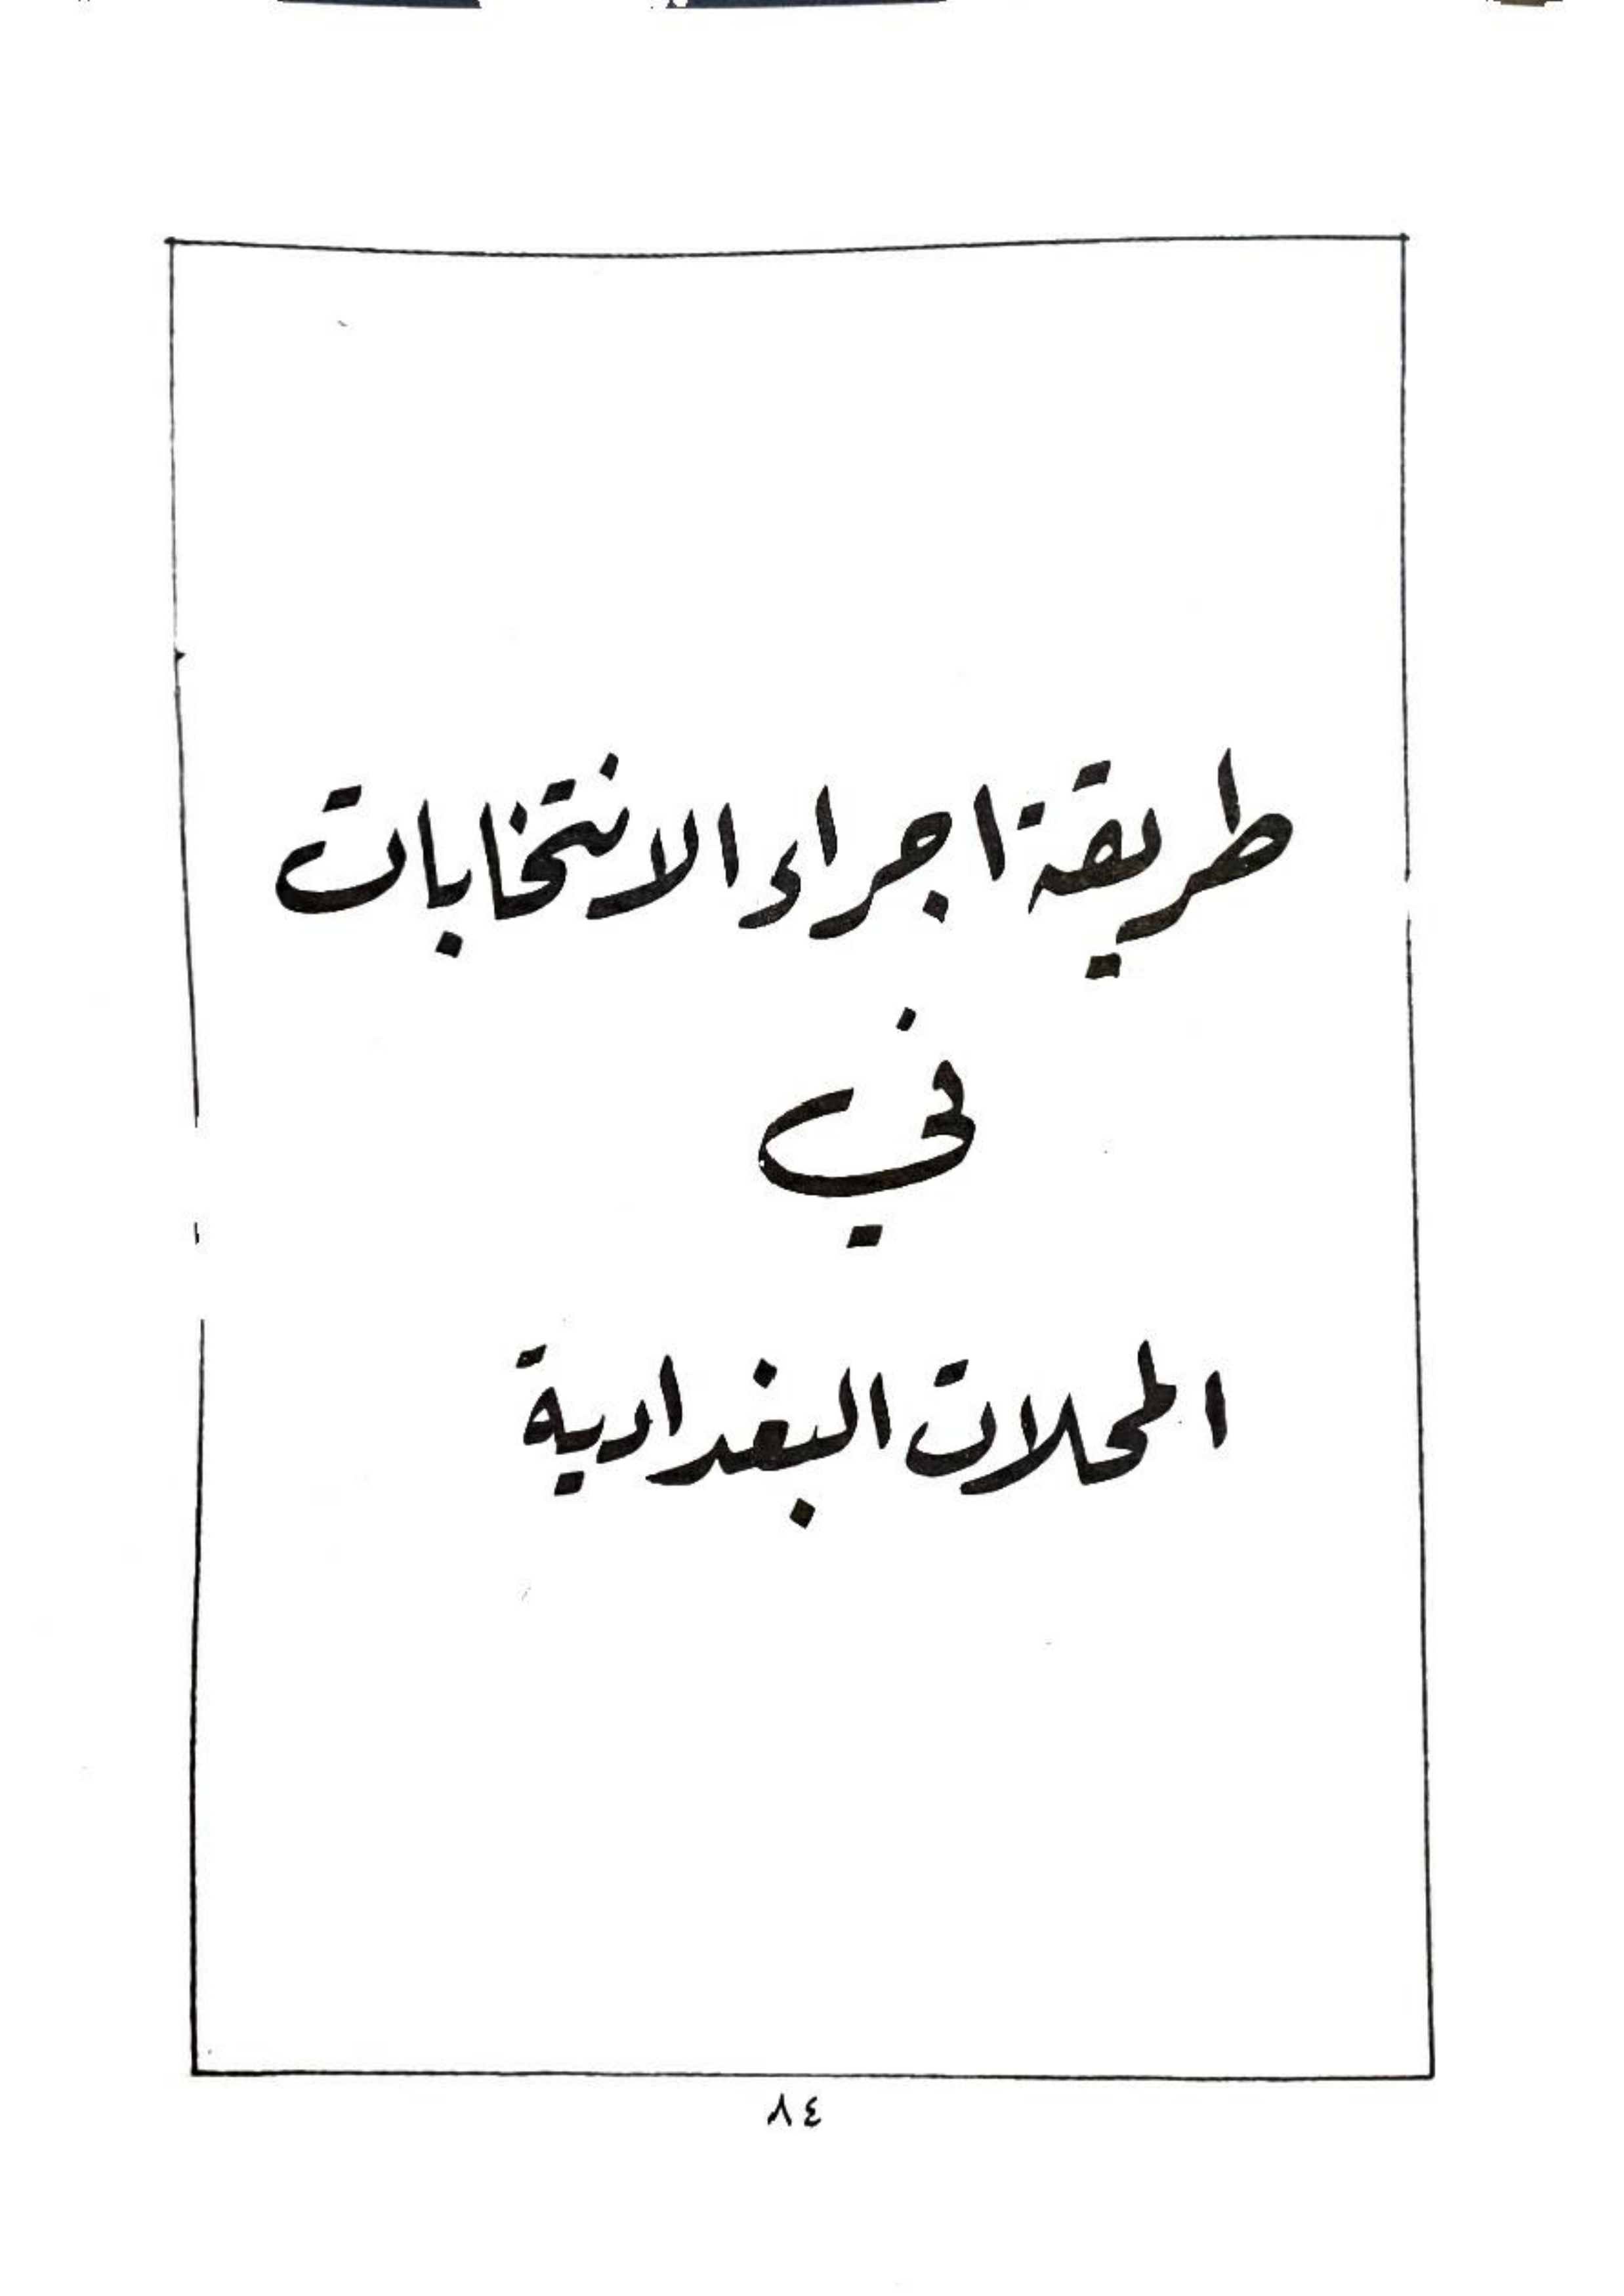 طريقة اجراء الانتخابات
في
المحلات البغدادية
٨٤